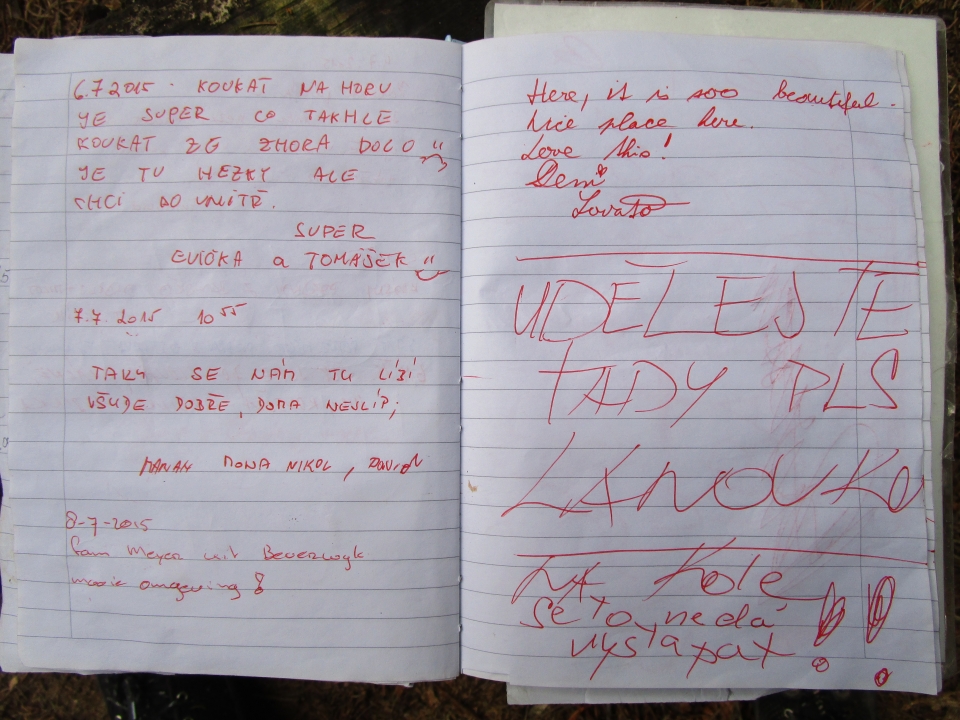 6.7 2015 - KOUKAT NA HORU
JE SUPER CO TAKHLE
KOUKAT ZE ZHORA DOLO
JE TU HEZKY ALE
CHCI DO VNITŘ.
SUPER
EVIČKA a TOMÁŠEK
7.7. 2015 10 55
TAKY SE NÁM TU LÍBÍ
VŠUDE DOBŘE, DOMA NEJLÍP;
NIKOL, DAVID
8-7-2015
fam Meyer uit Beverwyk
mooie omgeving
Here, it is soo beautiful.
Nice place here.
Love this!
Demi
Lovato
UDĚLEJTE
TADY PLS
LANOVKU
NA Kole
se to nedá
vyšlapat !!